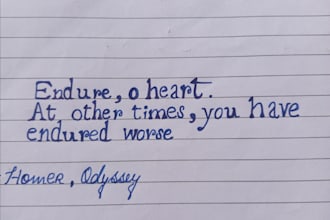 Endure, o heart.
At other times, you have
endured worse
Homer, Odyssey